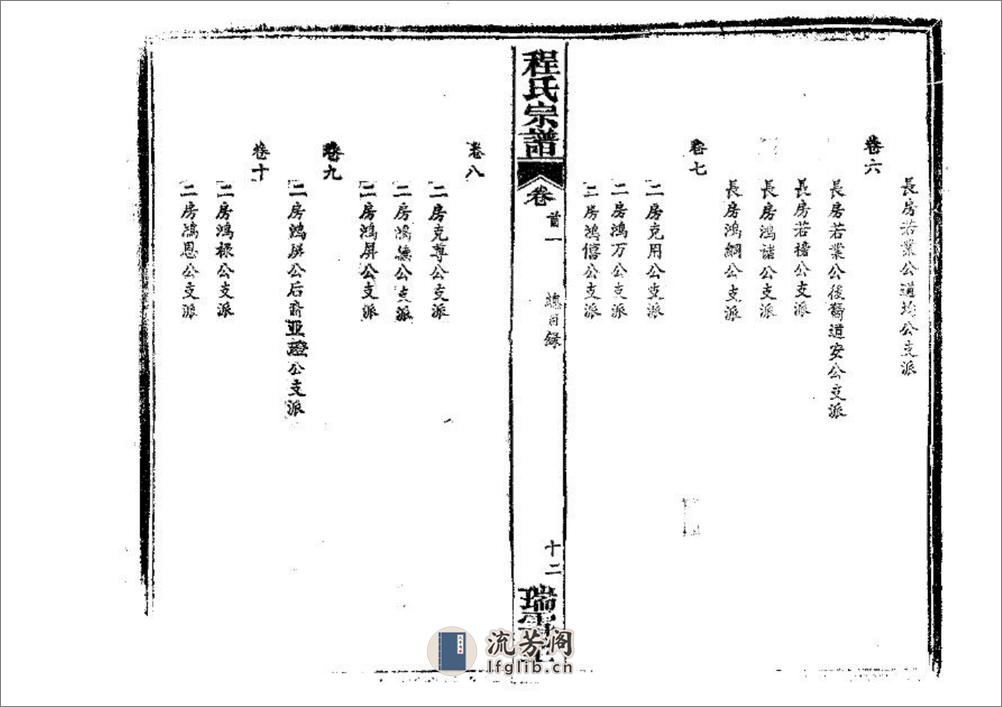 長房若業公道均公支派
卷六
長房若業公後裔道安公支派
長房若檜公支派
長房鴻諸公支派
長房鴻綱公支派
卷七
二房克用公支派
二房鴻万公支派
二房鴻僖公支派
程氏宗譜
卷
首一
總目錄
十二
瑞雪
卷八
二房克尊公支派
二房鴻德公支派
二房鴻屏公支派
卷九
二房鴻屏公后裔亚證公支派
卷十
二房鴻祿公支派
二房鴻恩公支派
流芳阁
lfglib.cn